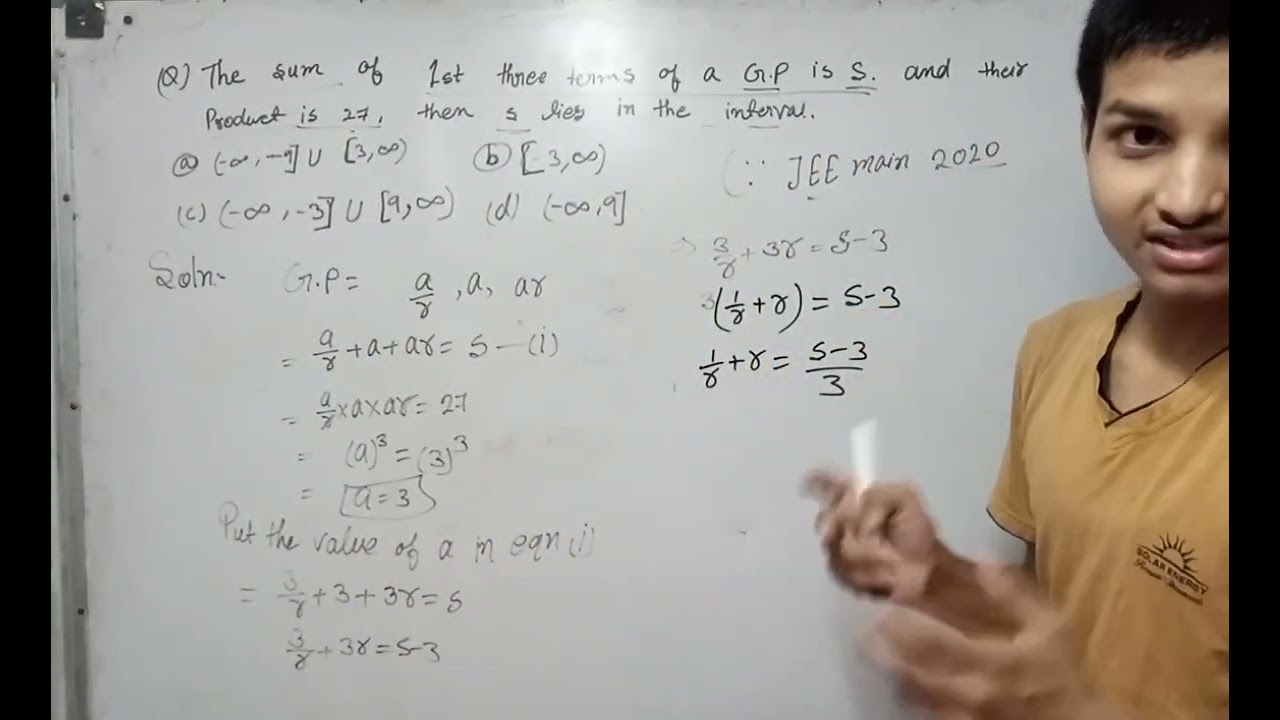 (Q) The sum of 1st three terms of a G.P is S. and their
Product is 27, then s lies in the interval.
(a) (-∞, -9] ∪ [3, ∞) (b) [-3, ∞)
(c) (-∞, -3] ∪ [9, ∞) (d) (-∞, 9]
(∵ JEE main 2020
Soln:- G.P = a/r, a, ar
= a/r + a + ar = S — (i)
= a/r × a × ar = 27
= (a)³ = (3)³
= a = 3
Put the value of a in eqn (i)
= 3/r + 3 + 3r = S
3/r + 3r = S - 3
⇒ 3/r + 3r = S - 3
3(1/r + r) = S - 3
1/r + r = S - 3/3
SOLAR ENERGY